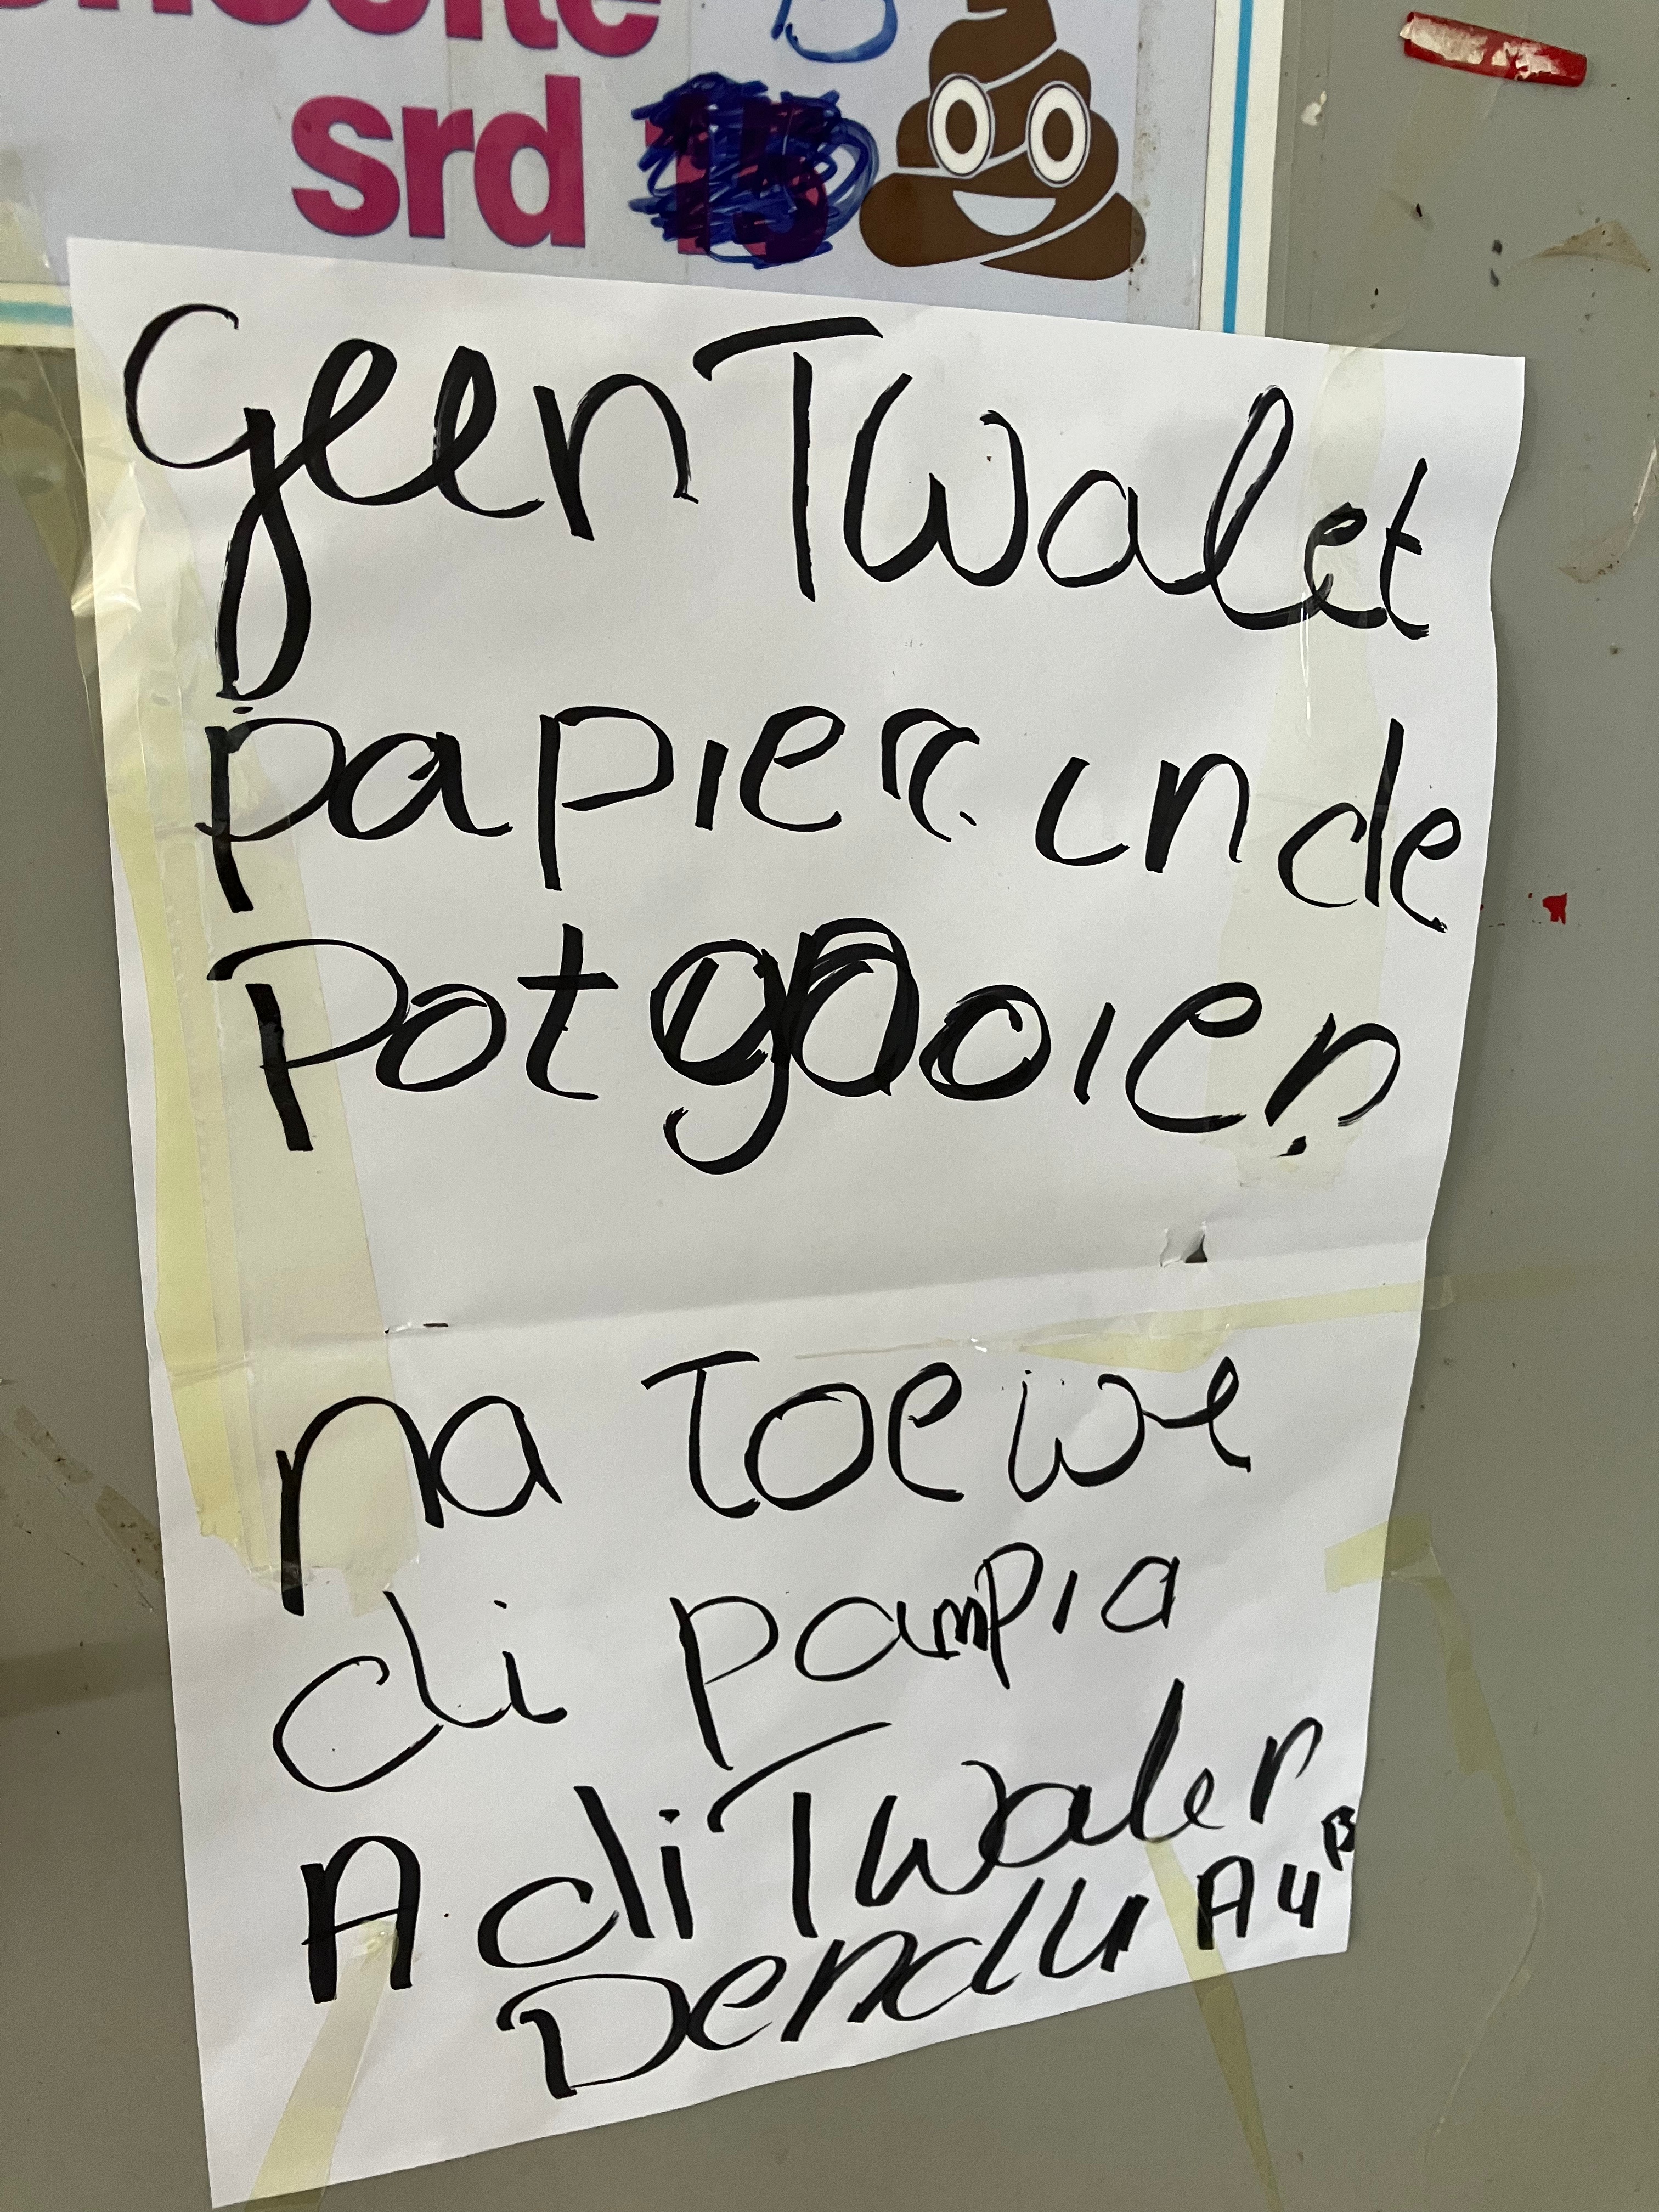 srd
geen Twalet
papier in de
Pot gooien
na Toewe
di pampia
A di Twaler